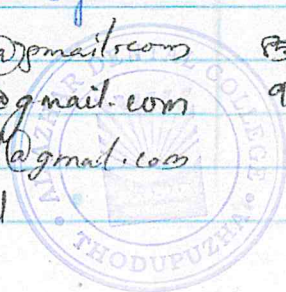 @gmail.com
@gmail.com
@gmail.com
AL-AZHAR DENTAL COLLEGE
THODUPUZHA